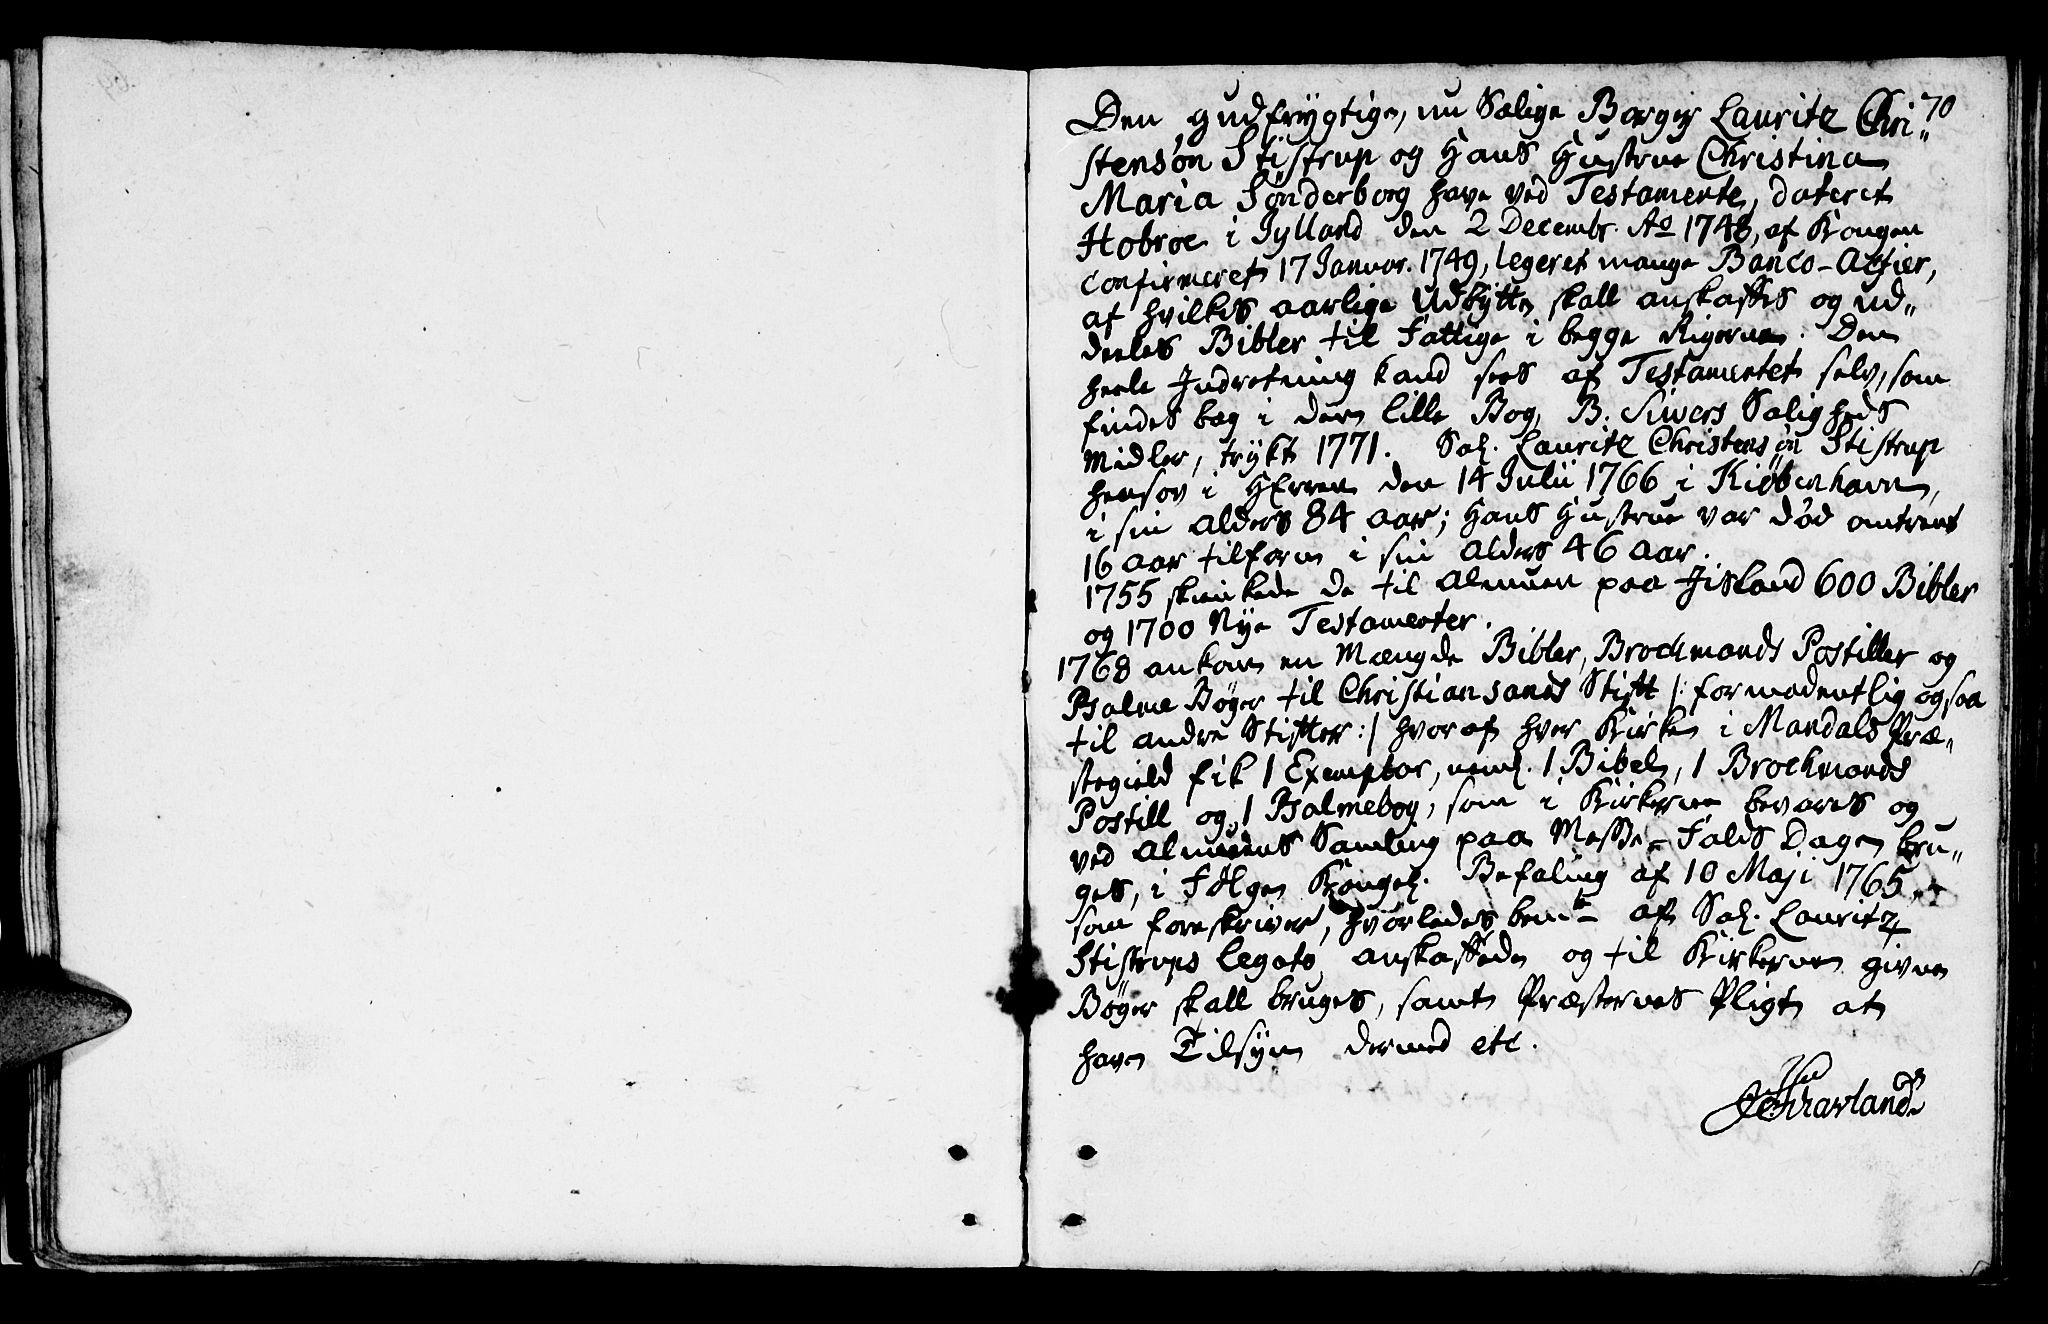 70
Den gudfrygtige, nu Salige Borger Lauritz Chri„
stensøn Stistrup og Hans Hustrue Christina
Maria Sønderborg have ved Testamente, dateret
Hobroe i Jylland den 2 Decembr. Ao 1748, af Kongen
confirmeret 17 Januar. 1749, legeret mange Banco-Actier,
af hvilkes aarlige Udbytte skall anskaffes og ud„
deeles Bibler til Fattige i begge Rigerne. Den
heele Indretning kand sees af Testamentet selv, som
findes bag i den lille Bog, B. Siwers Saligheds
Midler, trykt 1771. Sal. Lauritz Christensøn Stistrup
hensov i HErren den 14 Julii 1766 i Kiøbenhavn,
i sin Alders 84 aar; Hans Hustrue var død omtrent
16 aar tilforn i sin Alders 46 Aar.
1755 skienkede de til Almuen paa Iisland 600 Bibler
og 1700 Nye Testamenter.
1768 ankom en Mængde Bibler, Brochmands Postiller og
Psalme Bøger til Christiansands Stift /: formodentlig ogsaa
til andre Stifter :/ hvoraf hver Kirke i Mandals Præ„
stegield fik 1 Exemplar, neml. 1 Bibel, 1 Brochmands
Postill og 1 Psalmebog, som i Kirkerne bevares og
ved Almuens Samling paa Messe-Falds Dage bru„
ges, i Følge Kongel. Befaling af 10 Maji 1765,
som foreskriver, hvorledes bemte af Sal. Lauritz
Stistrups Legato anskaffede og til Kirkerne givne
Bøger skall bruges, samt Præsternes Pligt at
have Tilsyn dermed etc.